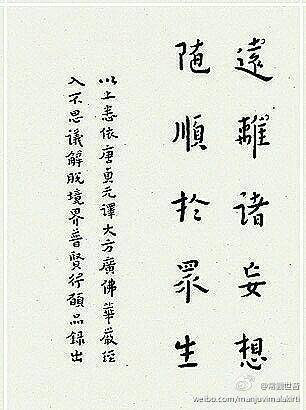 遠離諸妄想
隨順於眾生
以上悉依唐貞元譯大方廣佛華嚴經
入不思議解脫境界普賢行願品錄出
@常觀世音
weibo.com/manjuvimalakirti